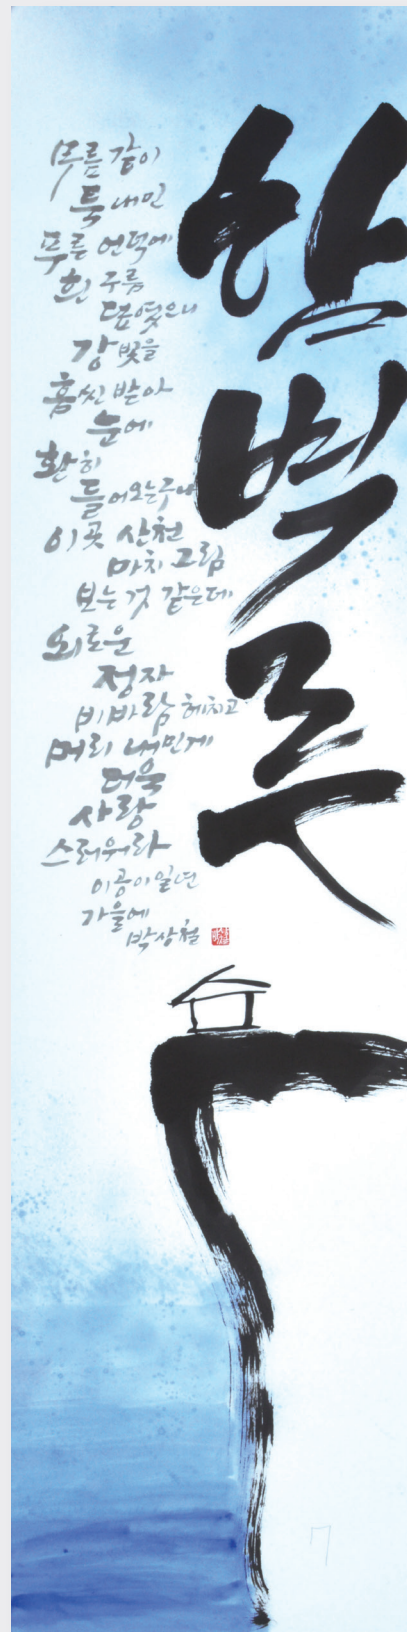 한벽루
무릎 같이
툭 내민
푸른 언덕에
흰 구름
덮였으니
강 빛을
흠씬 받아
눈에
환히
들어오는구나
이곳 산천
마치 그림
보는 것 같은데
외로운
정자
비바람 헤치고
머리 내민게
더욱
사랑
스러워라
이공이일년
가을에
박상철